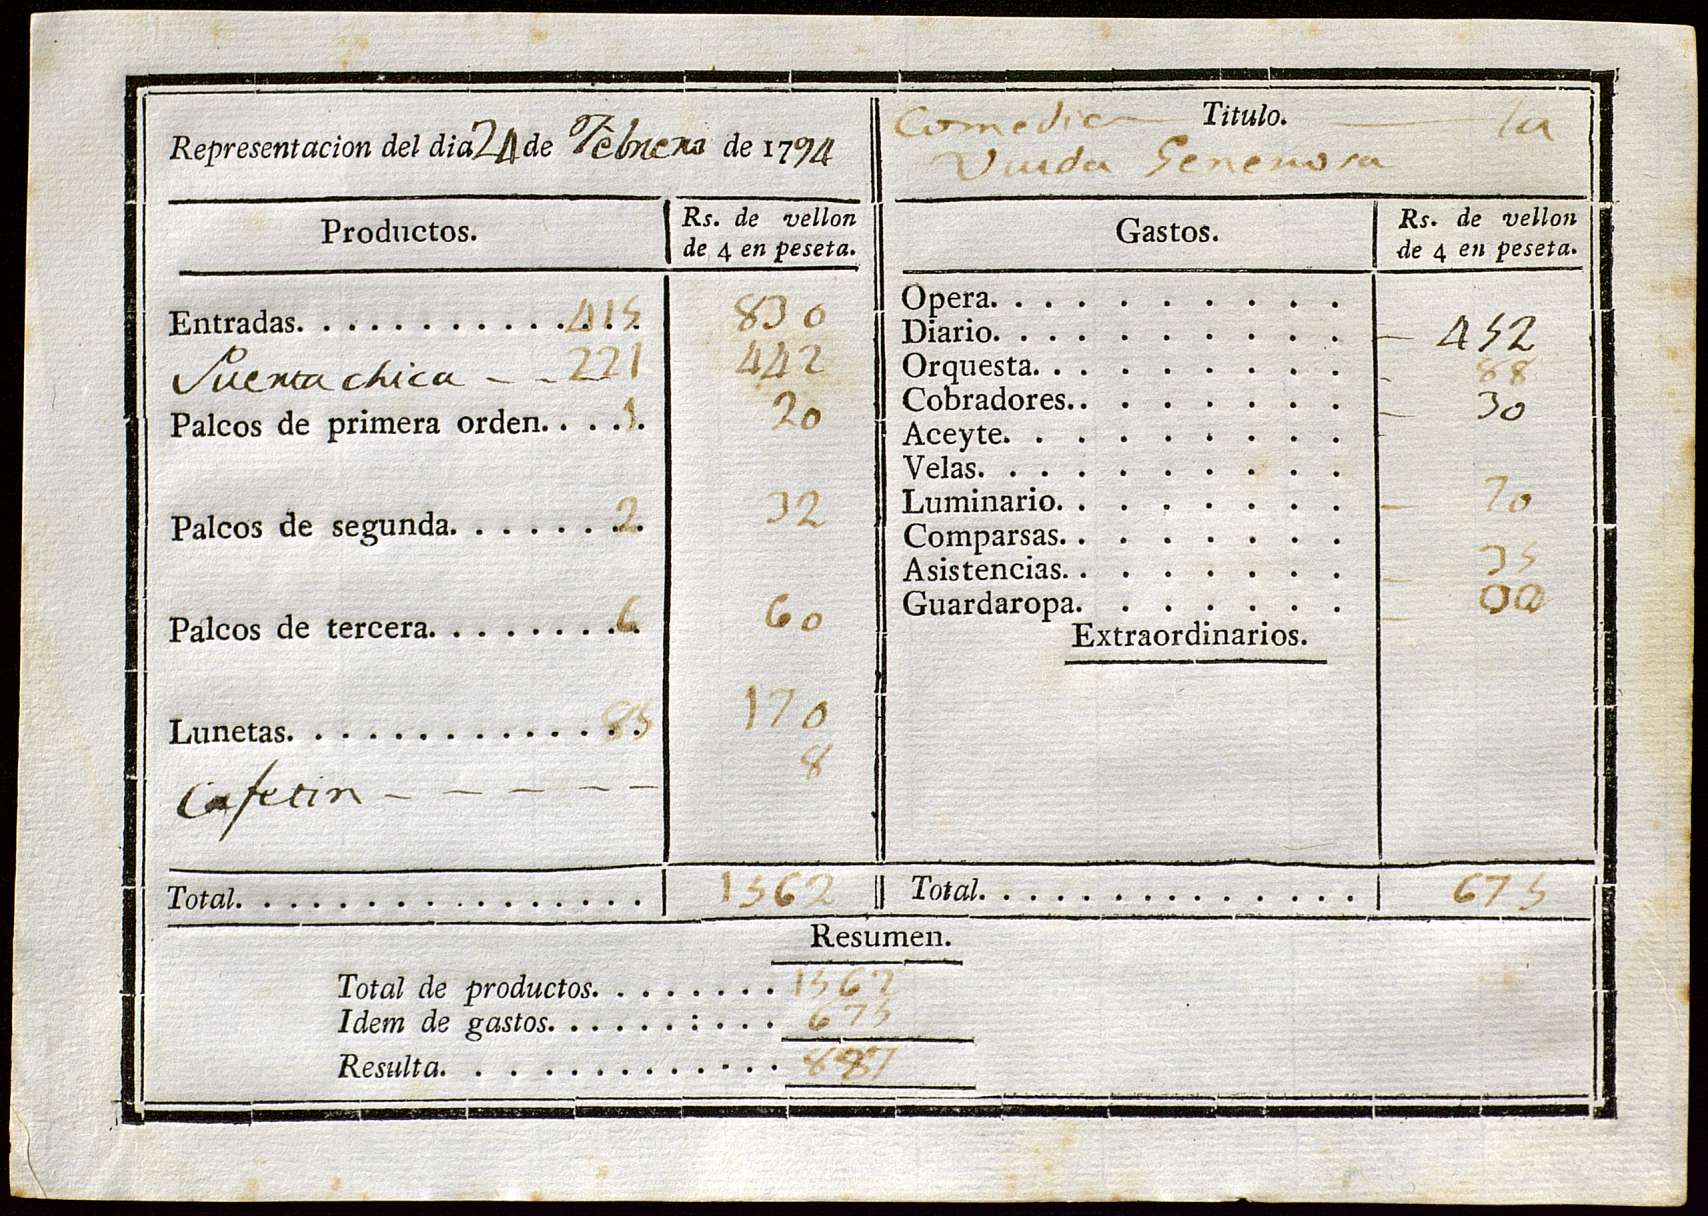 Representacion del dia 24 de Febrero de 1794
Comedia Titulo. la
Viuda Generosa
Productos. Rs. de vellon de 4 en peseta.
Entradas. . . . . . . . . . . . . . 415 830
Puerta chica - - 221 442
Palcos de primera orden. . . . . 1 20
Palcos de segunda. . . . . . . . 2 32
Palcos de tercera. . . . . . . . . 6 60
Lunetas. . . . . . . . . . . . . . . 85 170
Cafetin - - - - - - 8
Total. . . . . . . . . . . . . . . . 1562
Gastos. Rs. de vellon de 4 en peseta.
Opera. . . . . . . . . .
Diario. . . . . . . . . . - 452
Orquesta. . . . . . . . . - 88
Cobradores. . . . . . . . - 30
Aceyte. . . . . . . . .
Velas. . . . . . . . . .
Luminario. . . . . . . . - 70
Comparsas. . . . . . . .
Asistencias. . . . . . . . - 35
Guardaropa. . . . . . . - 00
Extraordinarios.
Total. . . . . . . . . . . . . . . 675
Resumen.
Total de productos. . . . . . . . 1562
Idem de gastos. . . . . . : . . . 675
Resulta. . . . . . . . . . . . . 887